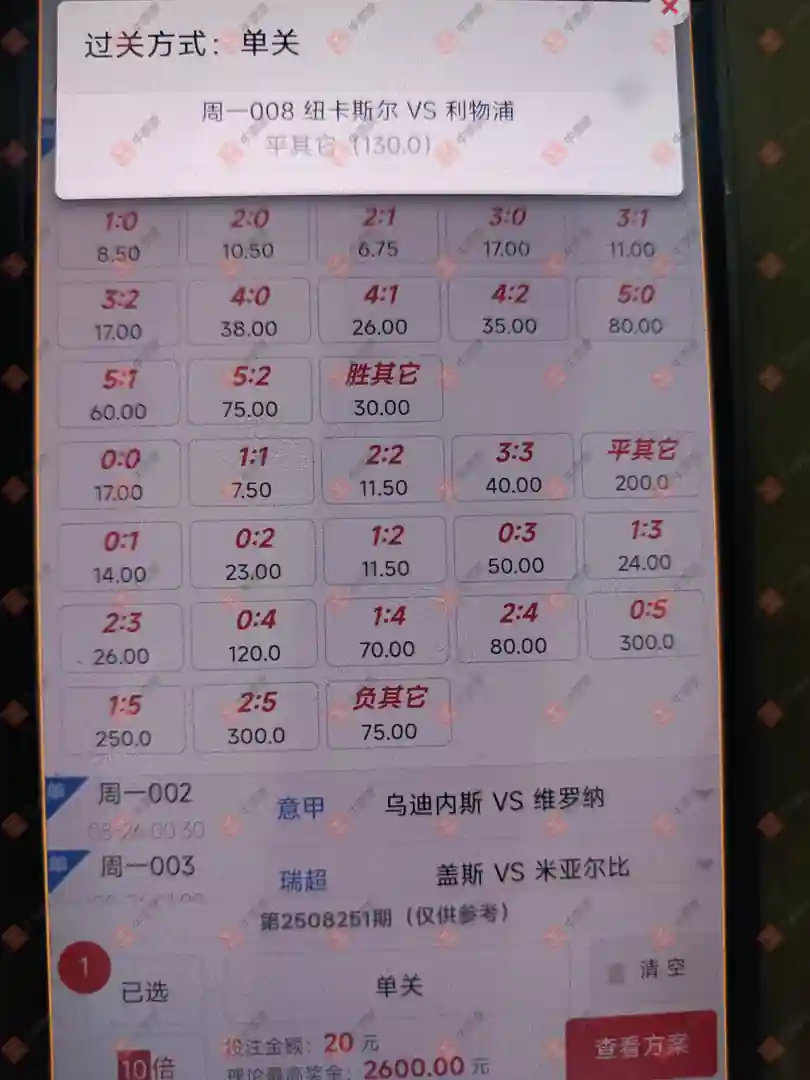 过关方式：单关
周一008 纽卡斯尔 VS 利物浦
平其它 (130.0)
1:0 2:0 2:1 3:0 3:1
8.50 10.50 6.75 17.00 11.00
3:2 4:0 4:1 4:2 5:0
17.00 38.00 26.00 35.00 80.00
5:1 5:2 胜其它
60.00 75.00 30.00
0:0 1:1 2:2 3:3 平其它
17.00 7.50 11.50 40.00 200.0
0:1 0:2 1:2 0:3 1:3
14.00 23.00 11.50 50.00 24.00
2:3 0:4 1:4 2:4 0:5
26.00 120.0 70.00 80.00 300.0
1:5 2:5 负其它
250.0 300.0 75.00
单 周一002 意甲 乌迪内斯 VS 维罗纳
08-26 00:30
单 周一003 瑞超 盖斯 VS 米亚尔比
第2508251期（仅供参考）
1 已选 单关 清空
10倍 投注金额：20 元 查看方案
理论最高奖金：2600.00 元